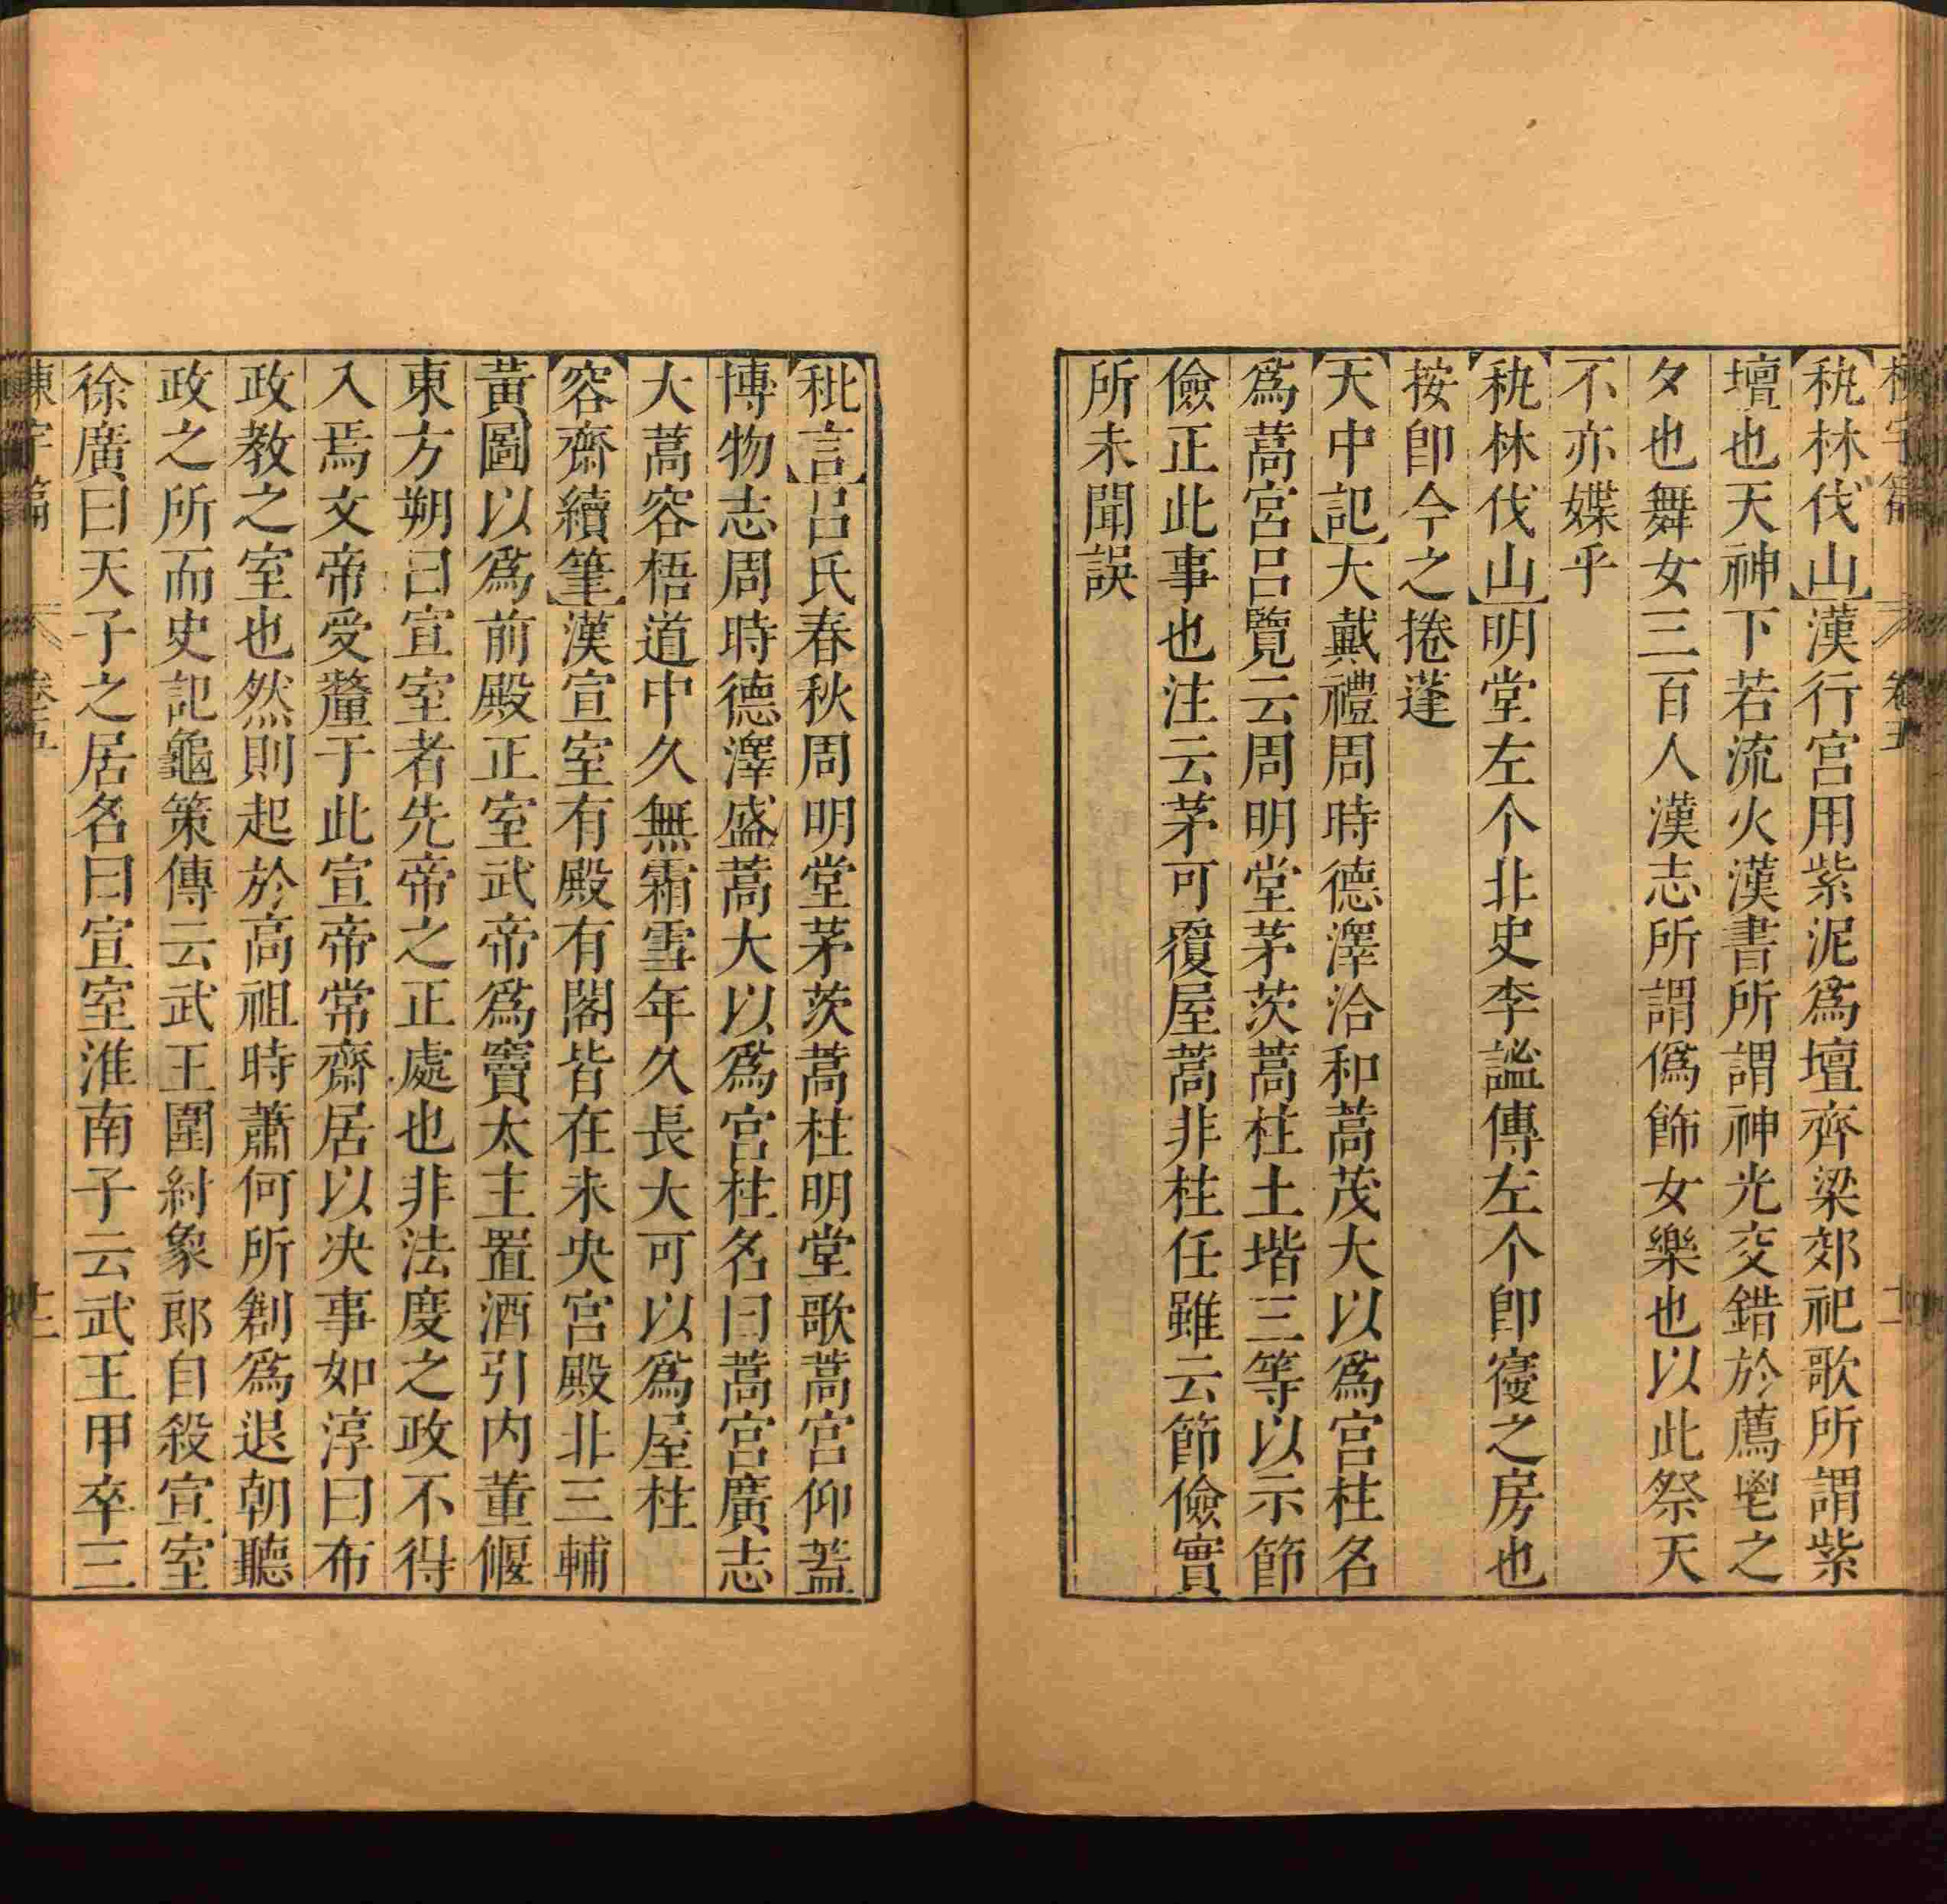 棟宇篇 卷五
秇林伐山漢行宮用紫泥爲壇齊梁郊祀歌所謂紫
壇也天神下若流火漢書所謂神光交錯於薦鬯之
夕也舞女三百人漢志所謂僞飾女樂也以此祭天
不亦媟乎
秇林伐山明堂左个北史李謐傳左个卽寢之房也
按卽今之捲蓬
天中記大戴禮周時德澤洽和蒿茂大以爲宮柱名
爲蒿宮呂覽云周明堂茅茨蒿柱土堦三等以示節
儉正此事也注云茅可覆屋蒿非柱任雖云節儉實
所未聞誤
秕言呂氏春秋周明堂茅茨蒿柱明堂歌蒿宮仰蓋
博物志周時德澤盛蒿大以爲宮柱名曰蒿宮廣志
大蒿容梧道中久無霜雪年久長大可以爲屋柱
容齋續筆漢宣室有殿有閣皆在未央宮殿北三輔
黃圖以爲前殿正室武帝爲竇太主置酒引內董偃
東方朔曰宣室者先帝之正處也非法度之政不得
入焉文帝受釐于此宣帝常齋居以决事如淳曰布
政教之室也然則起於高祖時蕭何所創爲退朝聽
政之所而史記龜策傳云武王圍紂象郎自殺宣室
徐廣曰天子之居名曰宣室淮南子云武王甲卒三
棟宇篇 卷五